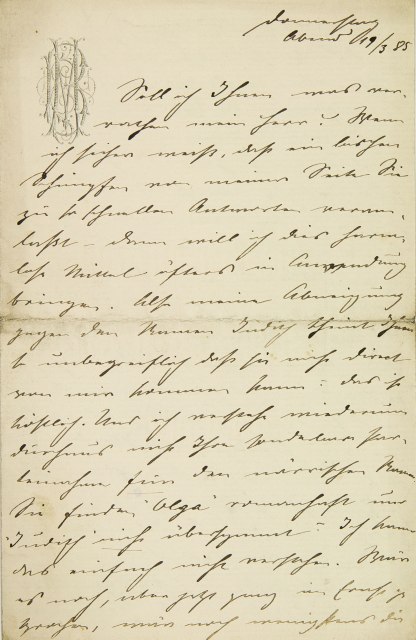 Donnerstag
Abend 19/3 85
Soll ich Ihnen was ver-
rathen mein Herr? Wenn
ich sicher weiß, daß ein bischen
Schimpfen von meiner Seite Sie
zu so schnellen Antworten veran-
laßt – dann will ich dies harm-
lose Mittel öfters in Anwendung
bringen. Also meine Abneigung
gegen den Namen Judith scheint Ihnen
so unbegreiflich daß sie nicht direct
von mir kommen kann – das ist
köstlich. Und ich verstehe wiederum
durchaus nicht Ihre sonderbare Par-
teinahme für den närrischen Namen
Sie finden "Olga" romanhaft und
"Judith" nicht überspannt? Ich kann
das einfach nicht verstehen. Wär
es noch, aber jetzt ganz im Ernst ge-
sprochen, wär noch wenigstens die